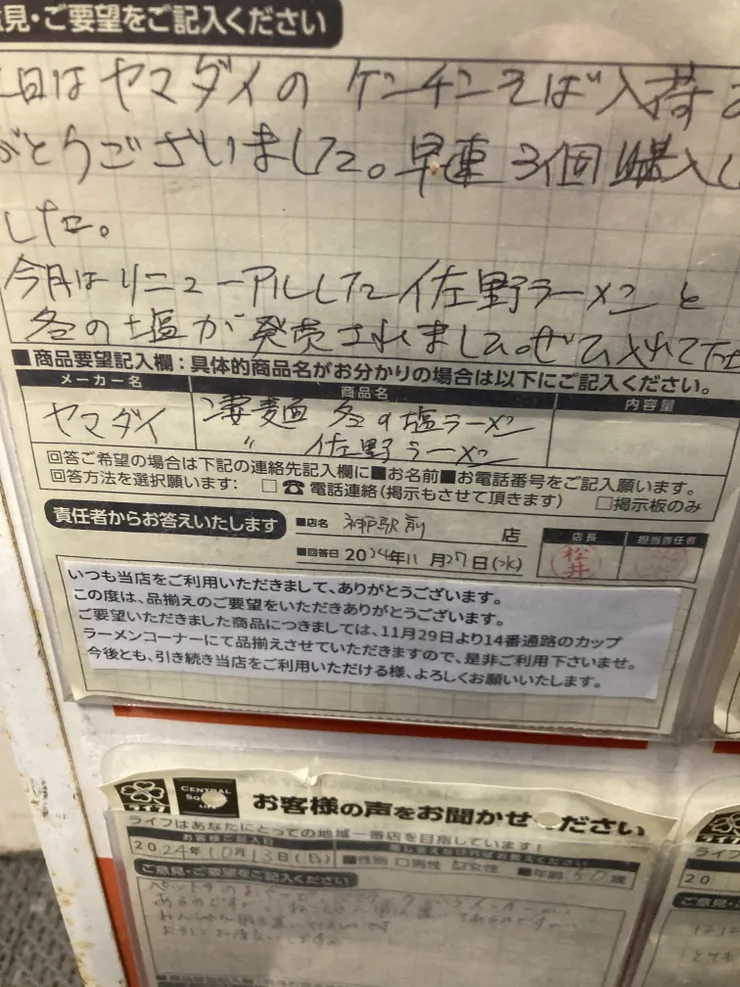 意見・ご要望をご記入ください
日はヤマダイのケンチンそば入荷
がとうございました。早速3個購入し
した。
今月はリニューアルした佐野ラーメンと
冬の塩が発売されました。ぜひ入れて下さ
■商品要望記入欄：具体的商品名がお分かりの場合は以下にご記入ください。
メーカー名 商品名 内容量
ヤマダイ 凄麺 冬の塩ラーメン
〃 佐野ラーメン
回答ご希望の場合は下記の連絡先記入欄に■お名前■お電話番号をご記入願います。
回答方法を選択願います： □☎電話連絡(掲示もさせて頂きます) □掲示板のみ
責任者からお答えいたします ■店名 神戸駅前 店 店長 担当責任者
■回答日 2024年11月27日(水) 松井
いつも当店をご利用いただきまして、ありがとうございます。
この度は、品揃えのご要望をいただきありがとうございます。
ご要望いただきました商品につきましては、11月29日より14番通路のカップ
ラーメンコーナーにて品揃えさせていただきますので、是非ご利用下さいませ。
今後とも、引き続き当店をご利用いただける様、よろしくお願いいたします。
ライフ CENTRAL SQUARE LIFE お客様の声をお聞かせください
ライフはあなたにとっての地域一番店を目指しています！
お客様ご記入日
2024年10月13日(日) ■性別 □男性 ☑女性 ■年齢 50歳
ご意見・ご要望をご記入ください
ライフ
20
ご意見・ご